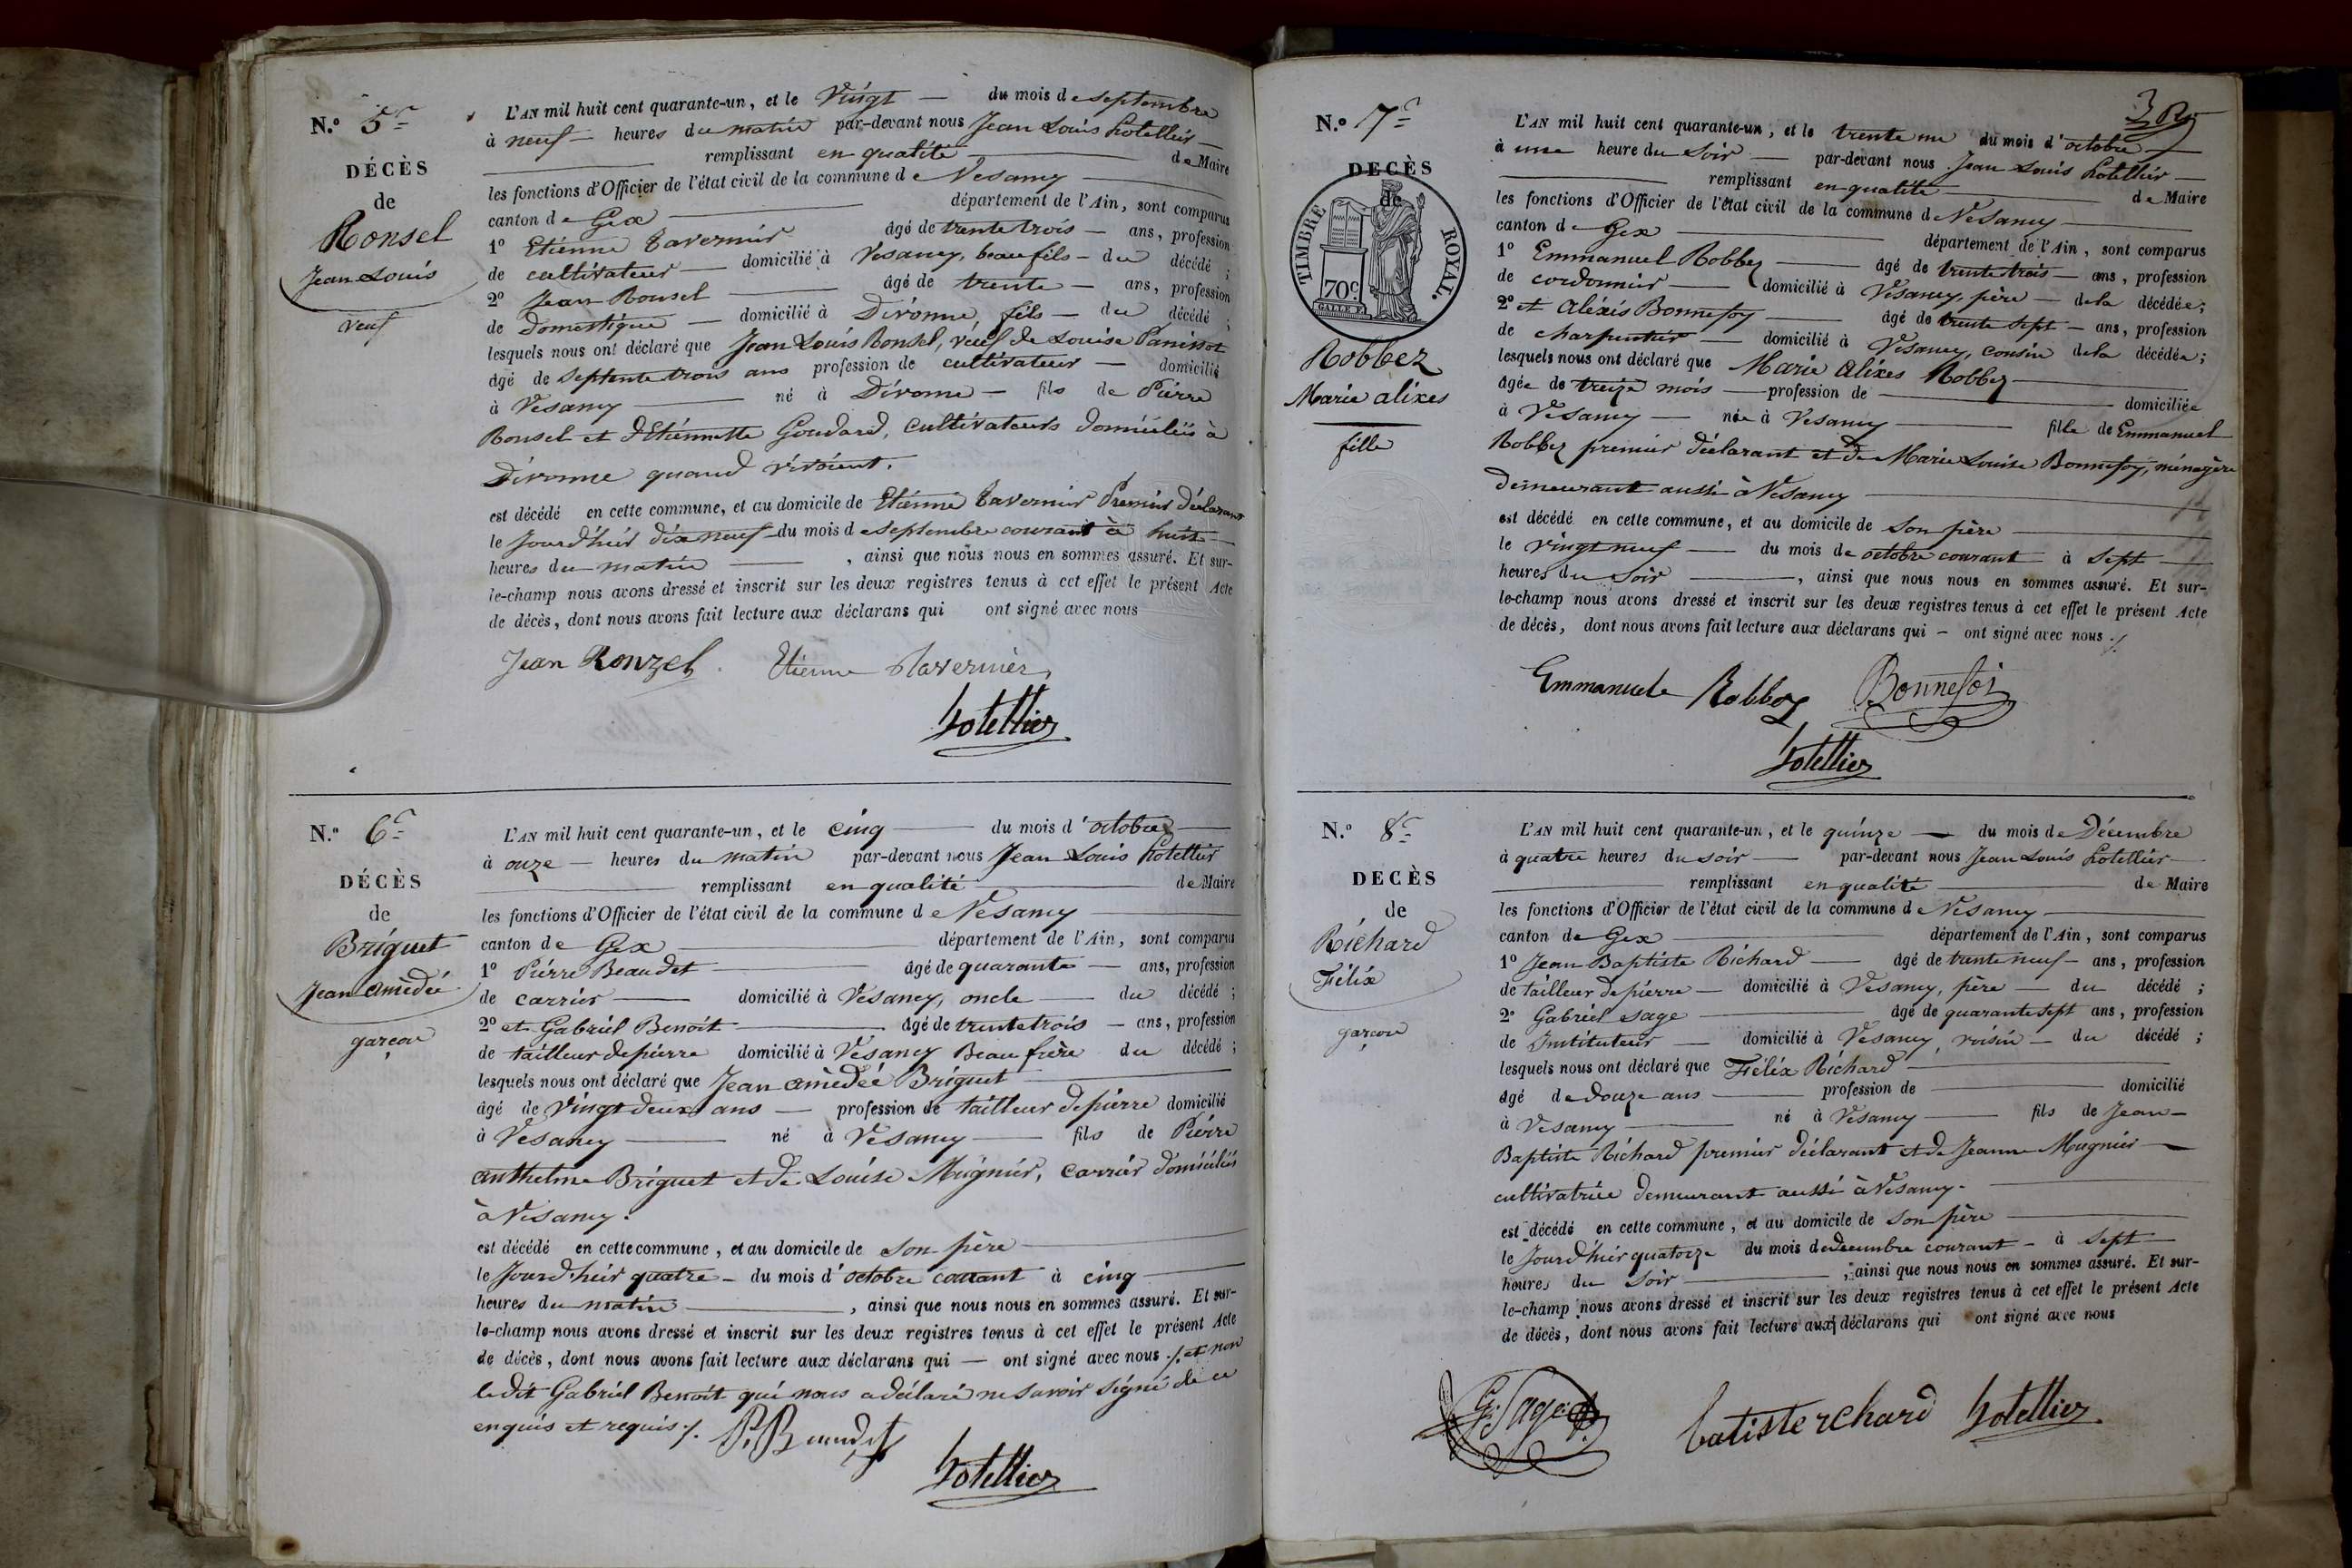 N.° 5e
DÉCÈS
de
Ronsel
Jean Louis
veuf
L'AN mil huit cent quarante-un, et le Vingt — du mois de septembre
à neuf — heures du matin par-devant nous Jean Louis hotellier —
remplissant en qualité — de Maire
les fonctions d'Officier de l'état civil de la commune de Vesancy —
canton de Gex — département de l'Ain, sont comparus
1° Etienne Tavernier âgé de trente trois — ans, profession
de cultivateur — domicilié à Vesancy, beau fils — du décédé ;
2° Jean Ronsel — âgé de trente — ans, profession
de domestique — domicilié à Divonne, fils — du décédé ;
lesquels nous ont déclaré que Jean Louis Ronsel, veuf de Louise Panissot
âgé de septente trois ans profession de cultivateur — domicilié
à Vesancy — né à Divonne — fils de Pierre
Ronsel et d'Etiennette Goudard, cultivateurs domiciliés à
Divonne quand vivoient.
est décédé en cette commune, et au domicile de Etienne Tavernier Premier déclarant
le Jourd'hier dix neuf — du mois de septembre courant à huit —
heures du matin — , ainsi que nous nous en sommes assuré. Et sur-
le-champ nous avons dressé et inscrit sur les deux registres tenus à cet effet le présent Acte
de décès, dont nous avons fait lecture aux déclarans qui ont signé avec nous
Jean Ronzel. Etienne Tavernier
hotellier
N.° 6e
DÉCÈS
de
Briguet
Jean amèdée
garçon
L'AN mil huit cent quarante-un, et le cinq — du mois d'octobre —
à onze — heures du matin par-devant nous Jean Louis hotellier
remplissant en qualité — de Maire
les fonctions d'Officier de l'état civil de la commune de Vesancy —
canton de Gex — département de l'Ain, sont comparus
1° Pierre Beaudet — âgé de quarante — ans, profession
de carrier — domicilié à Vesancy, oncle — du décédé ;
2° et Gabriel Benoit — âgé de trente trois — ans, profession
de tailleur de pierre domicilié à Vesancy Beau frère du décédé ;
lesquels nous ont déclaré que Jean amèdeé Briguet —
âgé de vingt deux ans — profession de tailleur de pierre domicilié
à Vesancy — né à Vesancy — fils de Pierre
anthelme Briguet et de Louise Mugnier, carrier domiciliés
à Vesancy.
est décédé en cette commune, et au domicile de son père —
le Jourd'hier quatre — du mois d'octobre courant à cinq —
heures du matin — , ainsi que nous nous en sommes assuré. Et sur-
le-champ nous avons dressé et inscrit sur les deux registres tenus à cet effet le présent Acte
de décès, dont nous avons fait lecture aux déclarans qui — ont signé avec nous ./. et non
ledit Gabriel Benoit qui nous a déclaré ne savoir signé de ce
enquis et requis ./. P. Beaudet
hotellier
N.° 7e
DECÈS
de
TIMBRE ROYAL.
70c
Robbez
Marie alixes
fille
L'AN mil huit cent quarante-un, et le trente un du mois d'octobre —
à une heure du soir — par-devant nous Jean Louis hotellier —
remplissant en qualité — de Maire
les fonctions d'Officier de l'état civil de la commune de Vesancy —
canton de Gex — département de l'Ain, sont comparus
1° Emmanuel Robbez — âgé de trente trois — ans, profession
de cordonnier — domicilié à Vesancy, père — de la décédée ;
2° et Aléxis Bonnefoy — âgé de trente sept — ans, profession
de charpentier — domicilié à Vesancy, cousin de la décédée ;
lesquels nous ont déclaré que Marie Alixes Robbez —
âgée de treize mois — profession de — domiciliée
à Vesancy — née à Vesancy — fille de Emmanuel
Robbez premier déclarant et de Marie Louise Bonnefoy, ménagère
demeurant aussi à Vesancy —
est décédé en cette commune, et au domicile de son père —
le vingt neuf — du mois de octobre courant à sept —
heures du soir — , ainsi que nous nous en sommes assuré. Et sur-
le-champ nous avons dressé et inscrit sur les deux registres tenus à cet effet le présent Acte
de décès, dont nous avons fait lecture aux déclarans qui — ont signé avec nous ./.
Emmanuele Robbez Bonnefoi
hotellier
N.° 8e
DECÈS
de
Richard
Félix
garçon
L'AN mil huit cent quarante-un, et le quinze — du mois de Décembre
à quatre heures du soir — par-devant nous Jean Louis hotellier —
remplissant en qualité — de Maire
les fonctions d'Officier de l'état civil de la commune de Vesancy —
canton de Gex — département de l'Ain, sont comparus
1° Jean Baptiste Richard — âgé de trente neuf — ans, profession
de tailleur de pierre — domicilié à Vesancy, père — du décédé ;
2° Gabriel Sage — âgé de quarante sept ans, profession
de Instituteur — domicilié à Vesancy, voisin — du décédé ;
lesquels nous ont déclaré que Félix Richard —
âgé de douze ans — profession de — domicilié
à Vesancy — né à Vesancy — fils de Jean —
Baptiste Richard premier déclarant et de Jeanne Mugnier —
cultivatrice demeurant aussi à Vesancy. —
est décédé en cette commune, et au domicile de son père —
le Jourd'hier quatorze du mois de decembre courant — à sept —
heures du soir — , ainsi que nous nous en sommes assuré. Et sur-
le-champ nous avons dressé et inscrit sur les deux registres tenus à cet effet le présent Acte
de décès, dont nous avons fait lecture aux déclarans qui ont signé avec nous
G. Sage batiste rchard hotellier